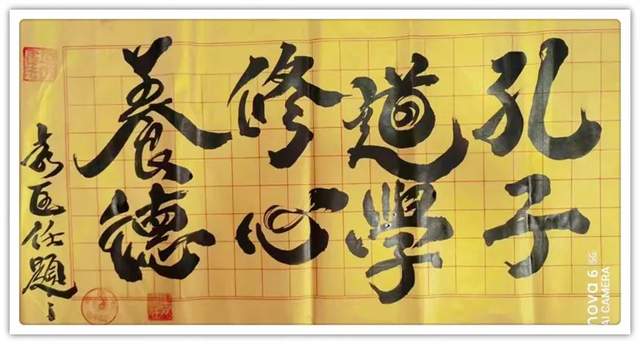 孔子
道學
修心
養德
任題
nova 6 5G
AI CAMERA